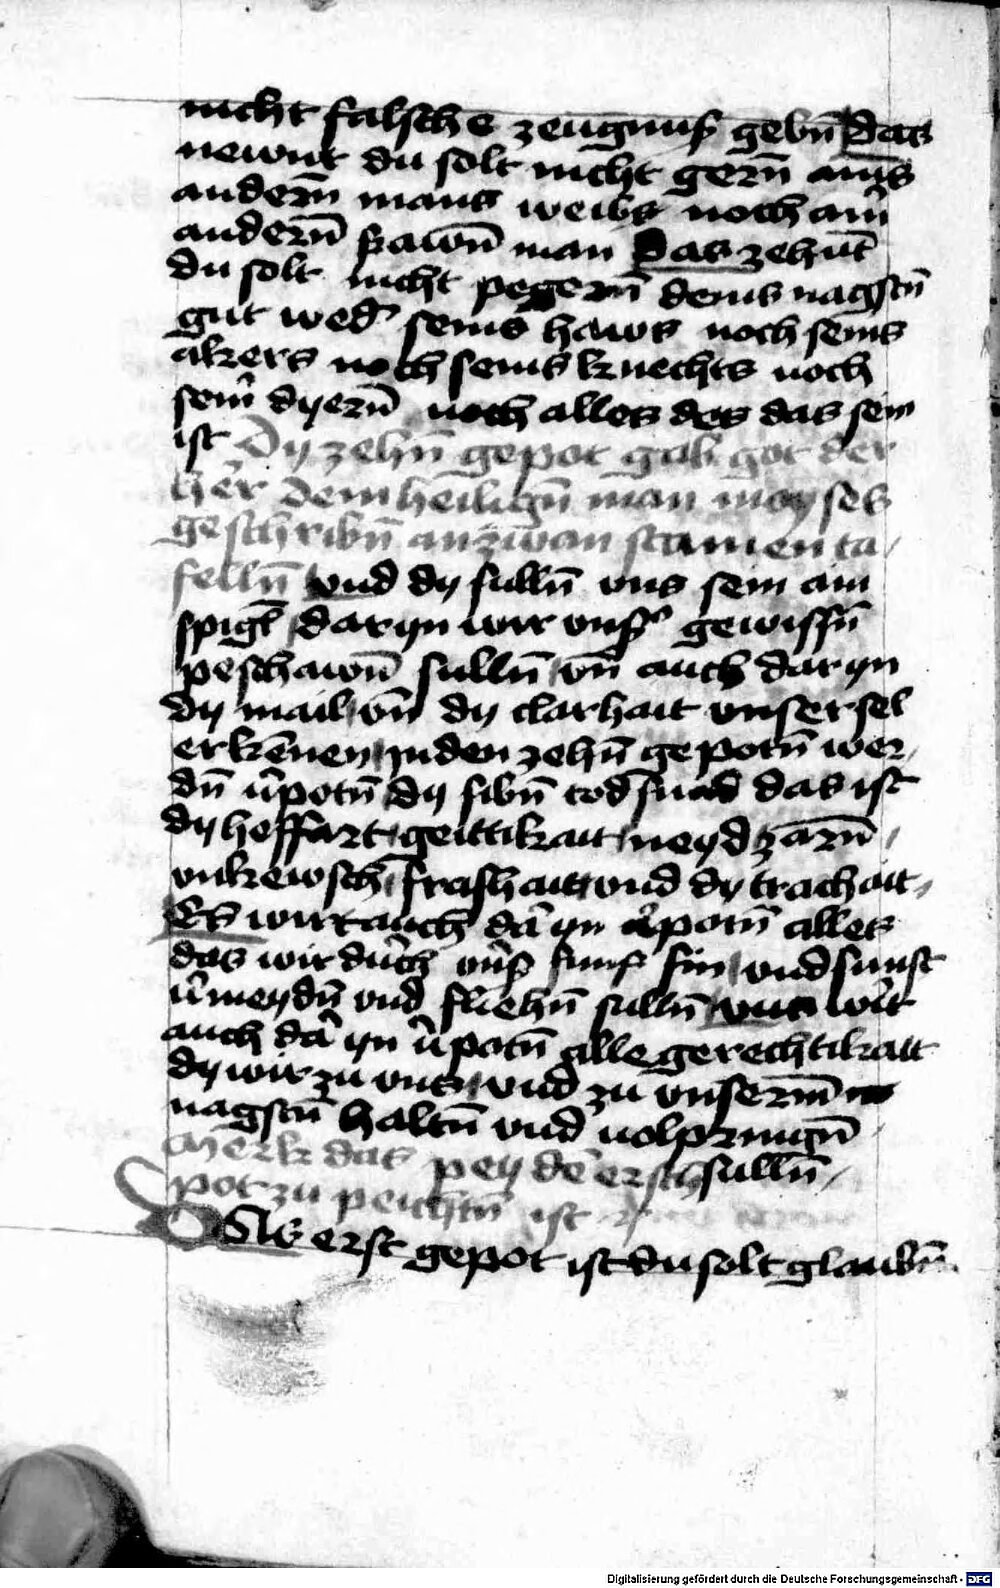 nicht falsche zeugnuß gebn̄ Das
newnt du solt nicht gern̄ ains
andern̄ mans weibs noch ain̄
andern̄ frawn̄ man Das zehnt̄
du solt nicht pegern̄ deins nagstn̄
gut wed' seins haws noch seins
akers noch seins knechts noch
sein̄ dyern̄ noch alles des das sein
ist Dy zehn̄ gepot gab got der
her dem heilign̄ man moyses
geschribn̄ an zwan stainen ta/
felln̄ vnd dy sulln̄ vns sein ain
spigl̄ daryn wir vnß' gewissn̄
peschawn̄ sulln̄ vn̄ auch daryn
dy mail vn̄ dy clarhait vnser sel
erkēnen in den zehn̄ gepotn̄ wer/
dn̄ v̄potn̄ dy sibn̄ todsund das ist
dy hoffart geittikait neyd zorn̄ /
vnkewsch frashait vnd dy trachait /
Es wirt auch dar yn v̄potn̄ alles
das wir durch vnß funf sin vnd sunst
v̄meydn̄ vnd fliehn̄ sulln̄ vns wirt
auch dar yn v̄potn̄ alle gerechtikait
dy wir zu vns vnd zu vnserm̄
nagstn̄ haltn̄ vnd volpringn̄
Merk das pey dē ersch sulln̄ /
pot zu peichtn̄ ist
DAs erst gepot ist du solt glaubn̄
Digitalisierung gefördert durch die Deutsche Forschungsgemeinschaft - DFG